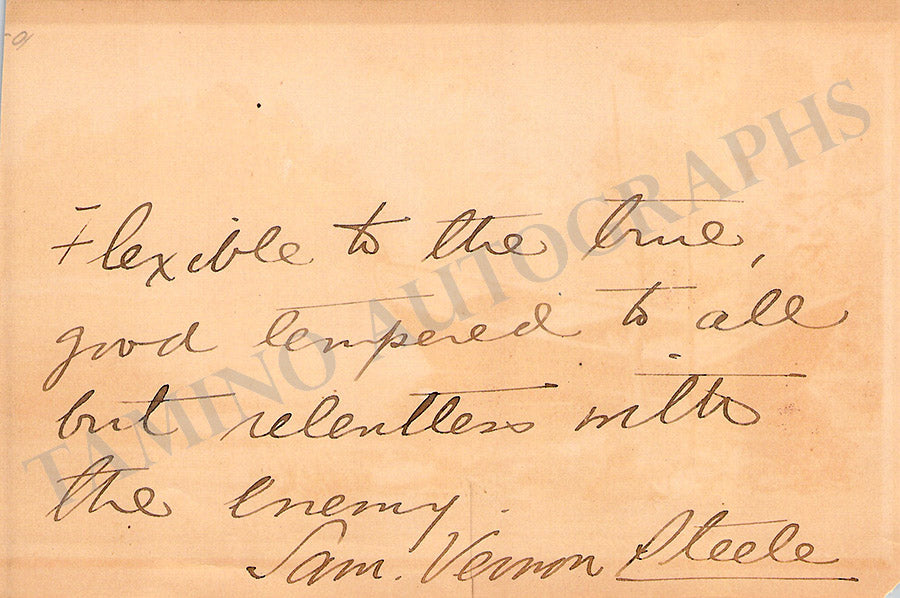 Flexible to the true,
good tempered to all
but relentless with
the enemy.
Sam. Vernon Steele
TAMINO AUTOGRAPHS